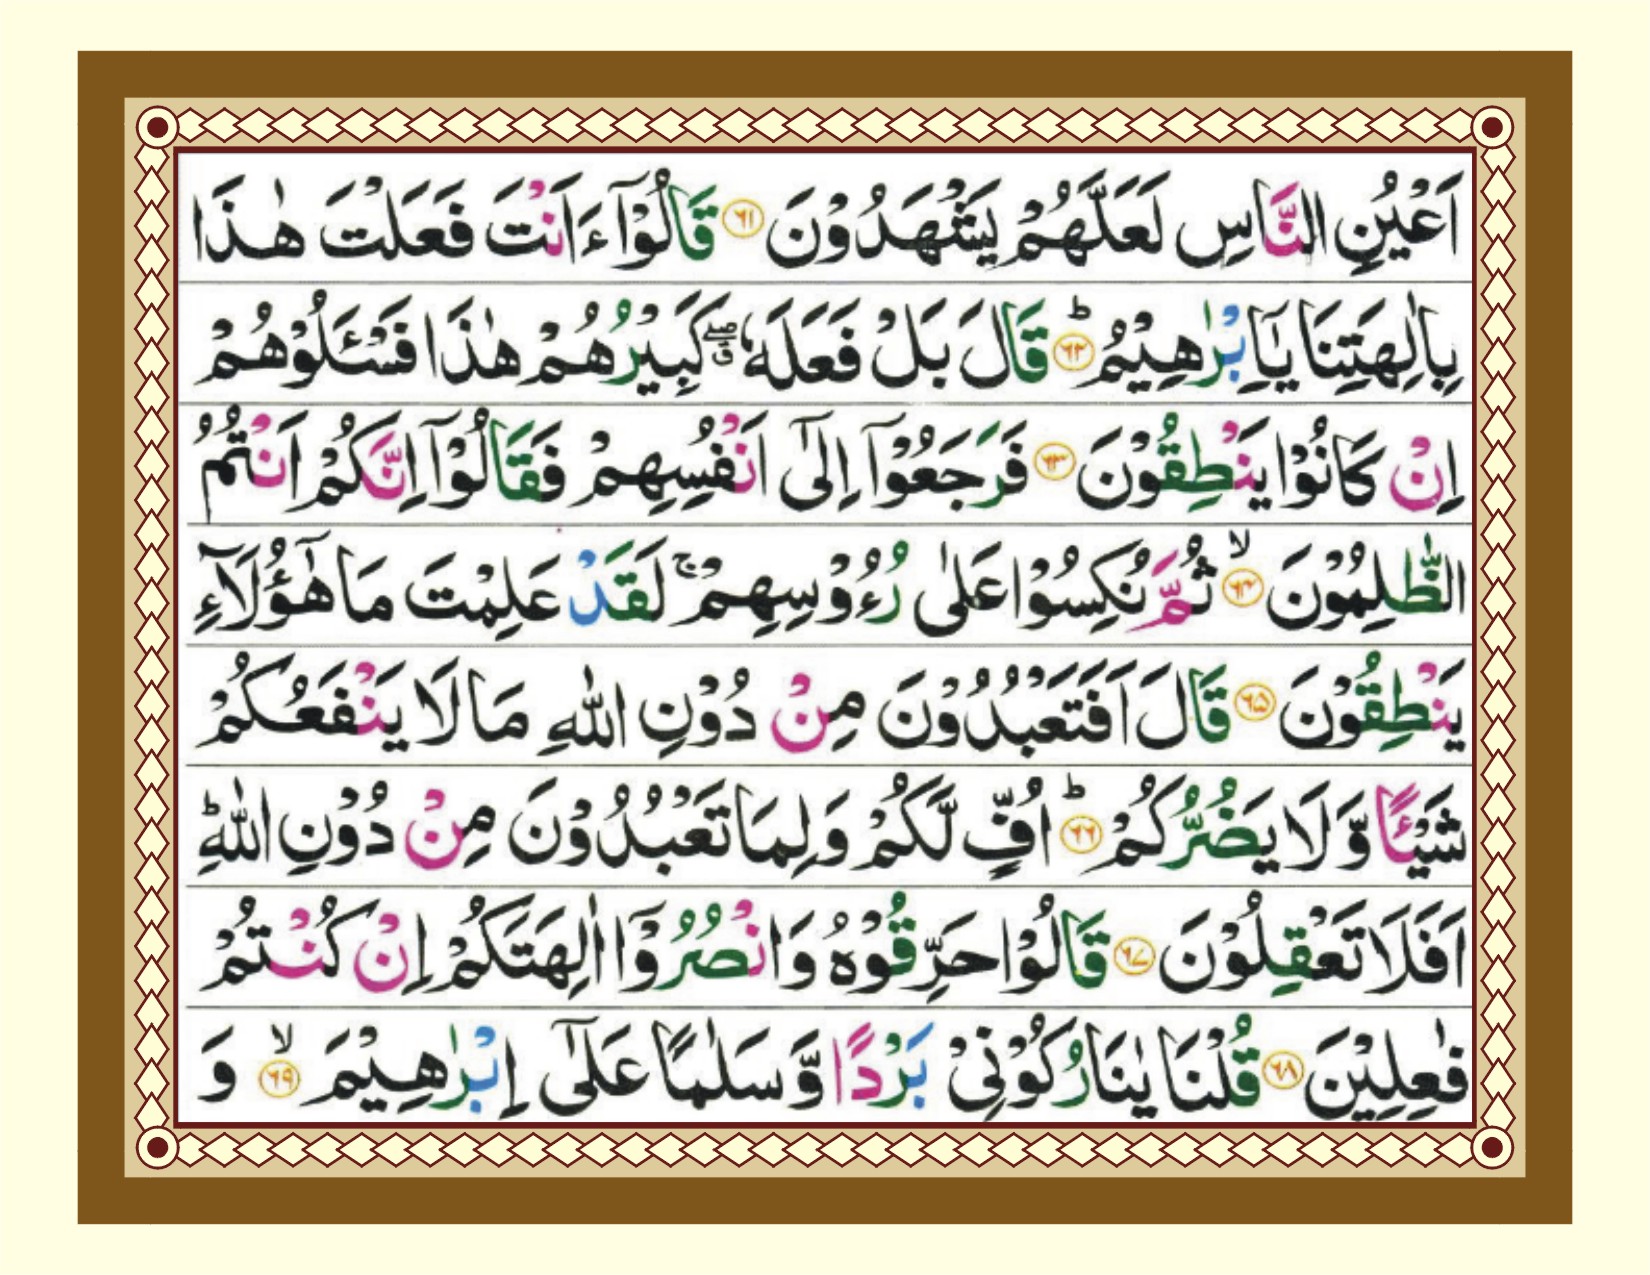 اَعْيُنِ النَّاسِ لَعَلَّهُمْ يَشْهَدُوْنَ ﴿۶۱﴾ قَالُوْۤا ءَاَنْتَ فَعَلْتَ هٰذَا
بِاٰلِهَتِنَا يٰۤاِبْرٰهِيْمُ ؕ﴿۶۲﴾ قَالَ بَلْ فَعَلَهٗ ۖۗ كَبِيْرُهُمْ هٰذَا فَسْـَٔلُوْهُمْ
اِنْ كَانُوْا يَنْطِقُوْنَ ﴿۶۳﴾ فَرَجَعُوْۤا اِلٰۤى اَنْفُسِهِمْ فَقَالُوْۤا اِنَّكُمْ اَنْتُمُ
الظّٰلِمُوْنَ ۙ﴿۶۴﴾ ثُمَّ نُكِسُوْا عَلٰى رُءُوْسِهِمْ ۚ لَقَدْ عَلِمْتَ مَا هٰۤؤُلَآءِ
يَنْطِقُوْنَ ﴿۶۵﴾ قَالَ اَفَتَعْبُدُوْنَ مِنْ دُوْنِ اللّٰهِ مَا لَا يَنْفَعُكُمْ
شَيْـًٔا وَّ لَا يَضُرُّكُمْ ؕ﴿۶۶﴾ اُفٍّ لَّكُمْ وَ لِمَا تَعْبُدُوْنَ مِنْ دُوْنِ اللّٰهِ ؕ
اَفَلَا تَعْقِلُوْنَ ﴿۶۷﴾ قَالُوْا حَرِّقُوْهُ وَ انْصُرُوْۤا اٰلِهَتَكُمْ اِنْ كُنْتُمْ
فٰعِلِيْنَ ﴿۶۸﴾ قُلْنَا يٰنَارُ كُوْنِيْ بَرْدًا وَّ سَلٰمًا عَلٰۤى اِبْرٰهِيْمَ ۙ﴿۶۹﴾ وَ